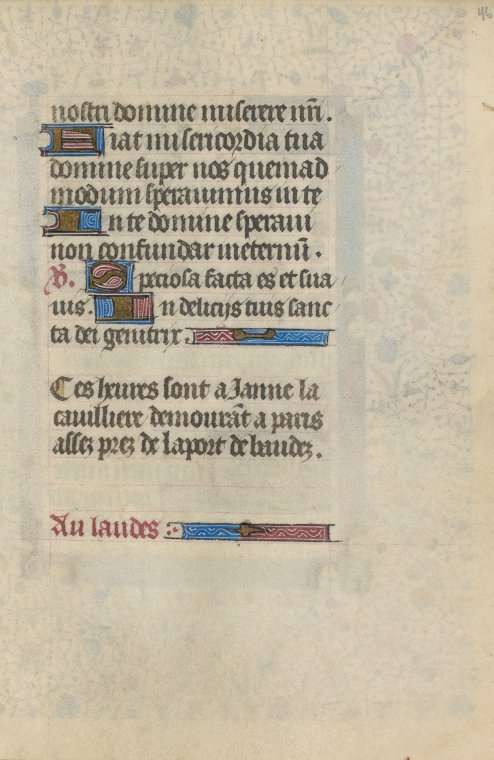 46
nostri domine miserere nr̄i.
Fiat misericordia tua
domine super nos quemad
modum sperauimus in te
In te domine speraui
non confundar ineternū.
V. Speciosa facta es et sua
uis. In delicijs tuis sanc
ta dei genitrix.
Ces heures sont a Janne la
cauilliere demourāt a paris
assez prez de laport de baudez.
Au laudes